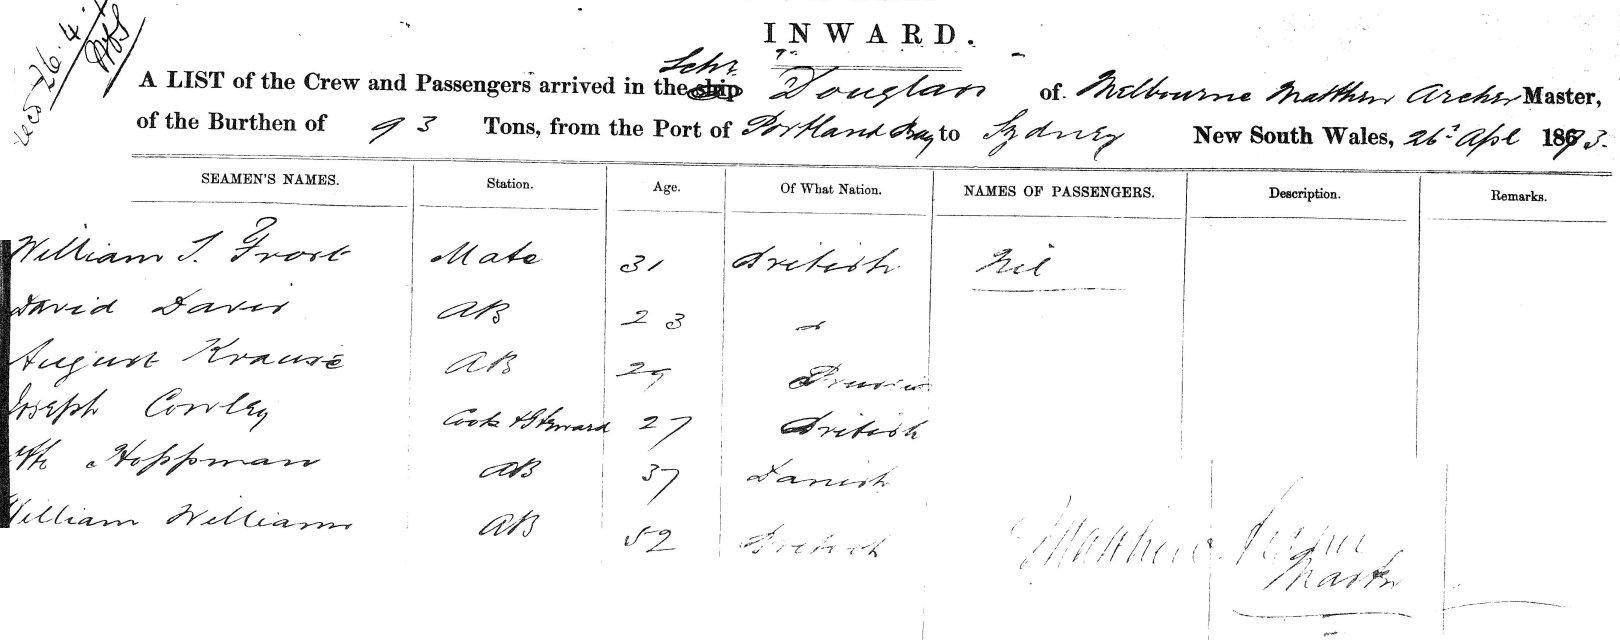 rec 26.4.
INWARD.
A LIST of the Crew and Passengers arrived in the ship Schr Douglas of Melbourne Matthew Archer Master,
of the Burthen of 93 Tons, from the Port of Portland Bay to Sydney New South Wales, 26 Apl 1873.
SEAMEN'S NAMES. Station. Age. Of What Nation. NAMES OF PASSENGERS. Description. Remarks.
William T. Frost Mate 31 British Nil
David Davis AB 23 "
August Krause AB 29 Prussia
Joseph Cowley Cook & Steward 27 British
Hoppman AB 37 Danish
William Williams AB 52 British
Matthew Archer
Master